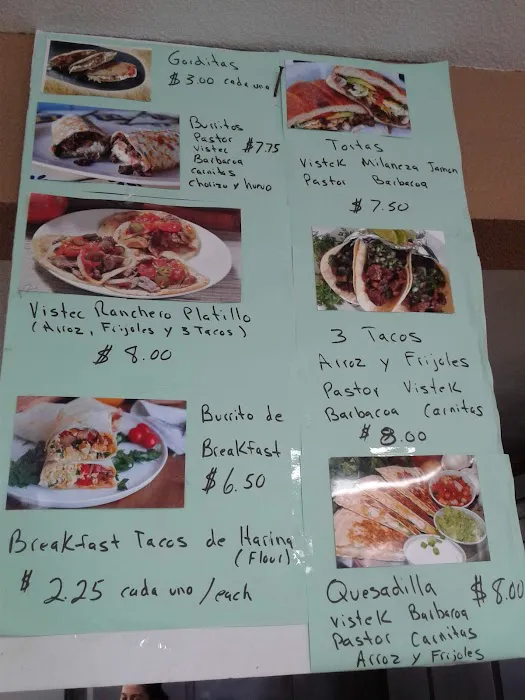 Gorditas
$3.00 cada uno
Burritos
Pastor
Vistec $7.75
Barbacoa
carnitas
chorizo y huevo
Vistec Ranchero Platillo
(Arroz, Frijoles y 3 Tacos)
$8.00
Burrito de
Breakfast
$6.50
Breakfast Tacos de Harina
(Flour)
$2.25 cada uno/each
Tortas
Vistek Milaneza Jamon
Pastor Barbacoa
$7.50
3 Tacos
Arroz y Frijoles
Pastor Vistek
Barbacoa Carnitas
$8.00
Quesadilla $8.00
Vistek Barbacoa
Pastor Carnitas
Arroz y Frijoles